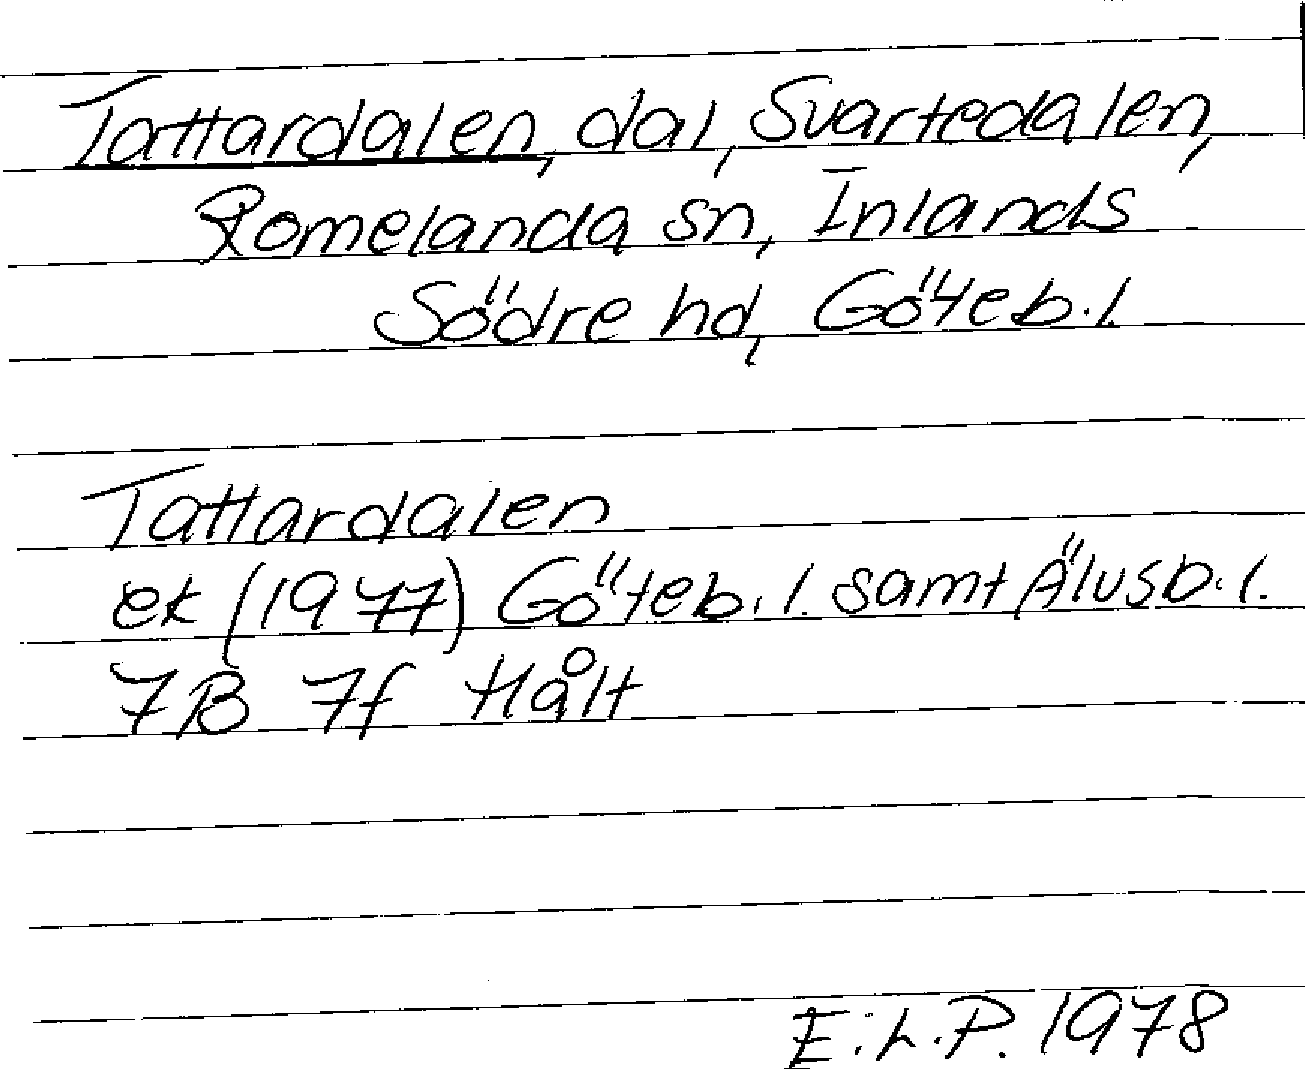 Tattardalen, dal, Svartedalen,
Romelanda sn, Inlands
Södre hd, Göteb.l.
Tattardalen
ek (1977) Göteb.l. samt Älvsb.l.
7B 7f Hålt
E.L.P. 1978